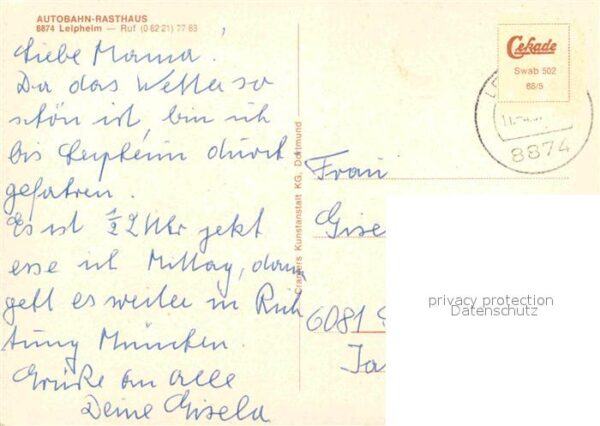 AUTOBAHN-RASTHAUS
8874 Leipheim — Ruf (0 82 21) 77 83
Liebe Mama!
Da das Wetter so
schön ist, bin ich
bis Leipheim durch
gefahren.
Es ist ½ 2 Uhr jetzt
esse ich Mittag, dann
geht es weiter in Rich
tung München.
Grüße an alle
Deine Gisela
Cramers Kunstanstalt KG, Dortmund
Cekade
Swab 502
68/5
8874
Frau
Gise
6081
privacy protection
Datenschutz